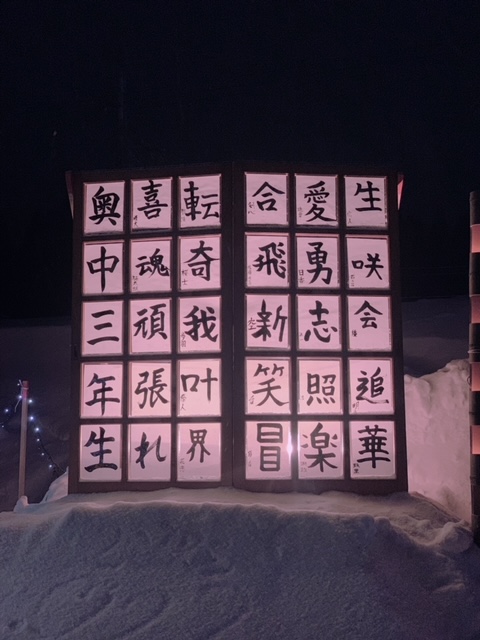 生咲会追華
愛勇志照楽
合飛新笑冒
転奇我叶界
喜魂頑張れ
奥中三年生